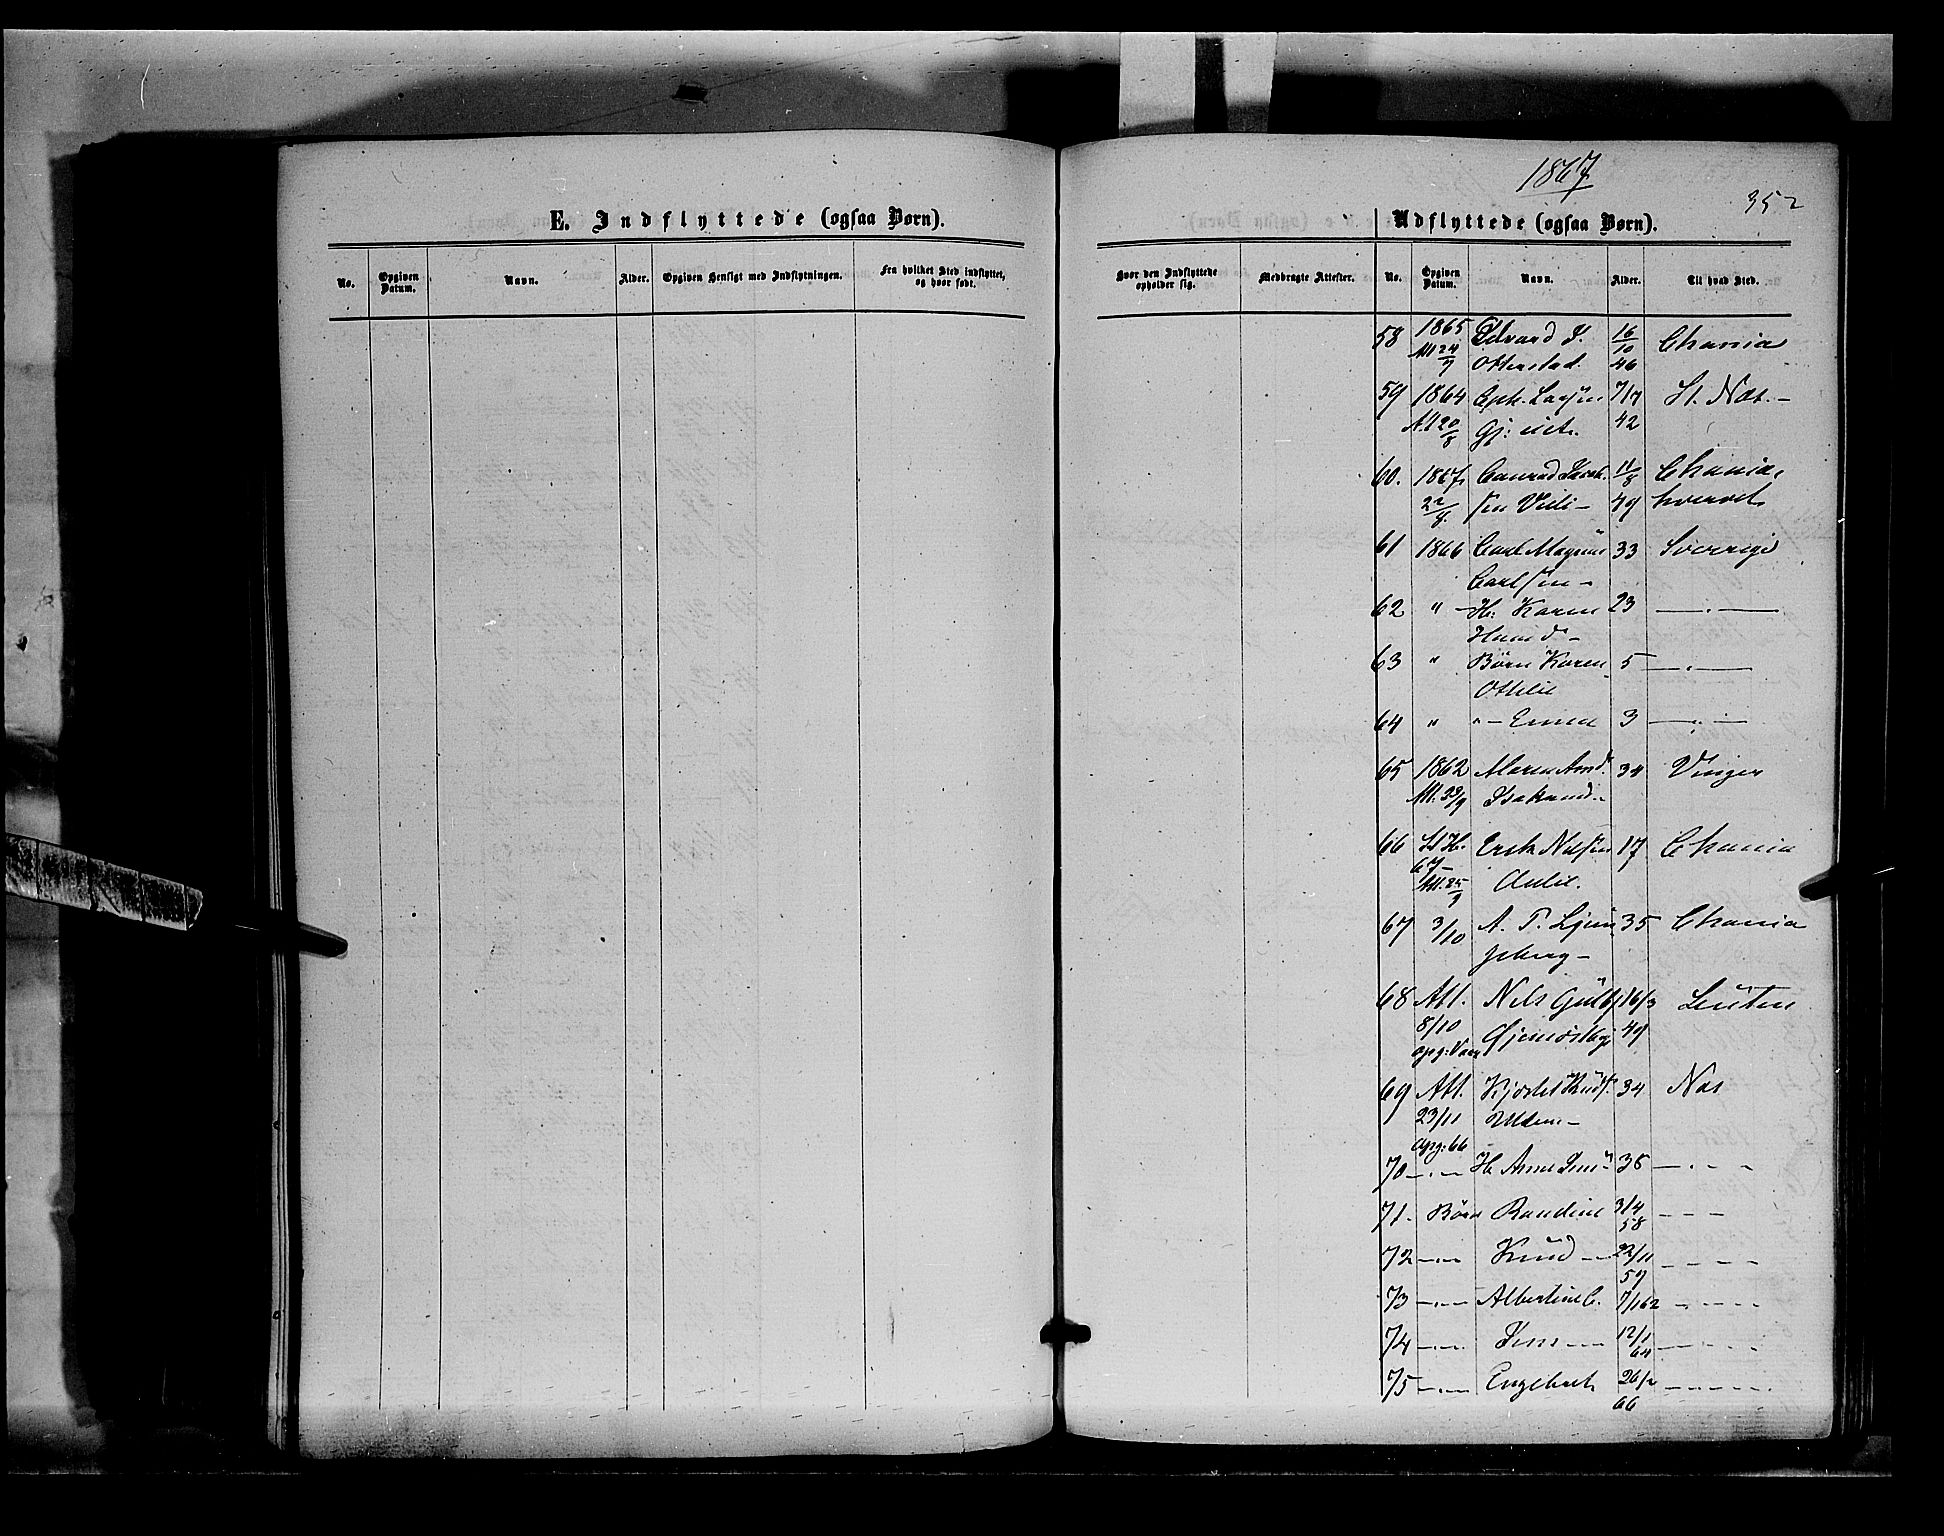 1867
352
E. Indflyttede (ogsaa Børn).
Udflyttede (ogsaa Børn).
No. Opgiven Datum. Navn. Alder. Opgiven Hensigt med Indflytningen. Fra hvilket Sted indflyttet, og hvor født.
Hvor den Indflyttede opholder sig. Medbragte Attester. No. Opgiven Datum. Navn. Alder. Til hvad Sted.
58 1865 Edvard J. 16/10 Chania
Att 24/9 Otterstad. 46
59 1864 Larsen 7/7 St. Næs.-
Att 20/8 42
60. 1867 Conrad Jacob- 11/8 Chania,
22/8. sen - 49
61 1866 Carl Magnus 33 Sverrige
Carlsen -
62 " - H: Karen 23 — " —
Hansd -
63 " Børn Karen 5 — " —
Othilie
64 " " - Emma 3 — " —
65 1862 Maren And. 34 Vinger
Att. 23/9 Isaksd.
66 Erik Nilsen 17 Chania
67-
Att. 25/9
67 3/10 A. T. Ljun 35 Chania
gberg -
68 Att. Nils Gulb 16/3 Løiten
8/10 49
opg: Vaar
69 Att. Kjøstel Knuds. 34 Næs
23/11
Opg: 66
70 - " - H Anne Jens 36 - " - -
71. Børn Randine 3/4 - - -
58
72 - " - Knud - 22/11 - - - -
59
73 - " - Albertine C. 7/1 62 - - - -
74 - " - Jens - 12/1 - - - -
64
75 - " - Engebret 26/2 - - - -
66